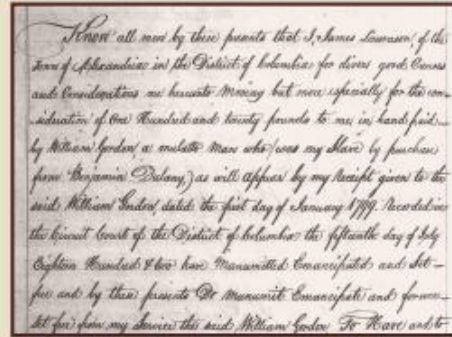 Know all men by these presents that I, James Lawrason, of the
Town of Alexandria in the District of Columbia for divers good Causes
and Considerations me hereunto Moving but more especially for the con-
sideration of One Hundred and twenty pounds to me in hand paid
by William Gordon, a mulatto Man who was my Slave by purchase
from Benjamin Dulany,) as will appear by my Receipt given to the
said William Gordon, dated the first day of January 1799. Recorded in
the Circuit Court of the District of Columbia the fifteenth day of July
Eighteen Hundred & two have Manumitted Emancipated and Set-
free and by these presents Do manumit Emancipate and forever
set free from my Service the said William Gordon To Have and to